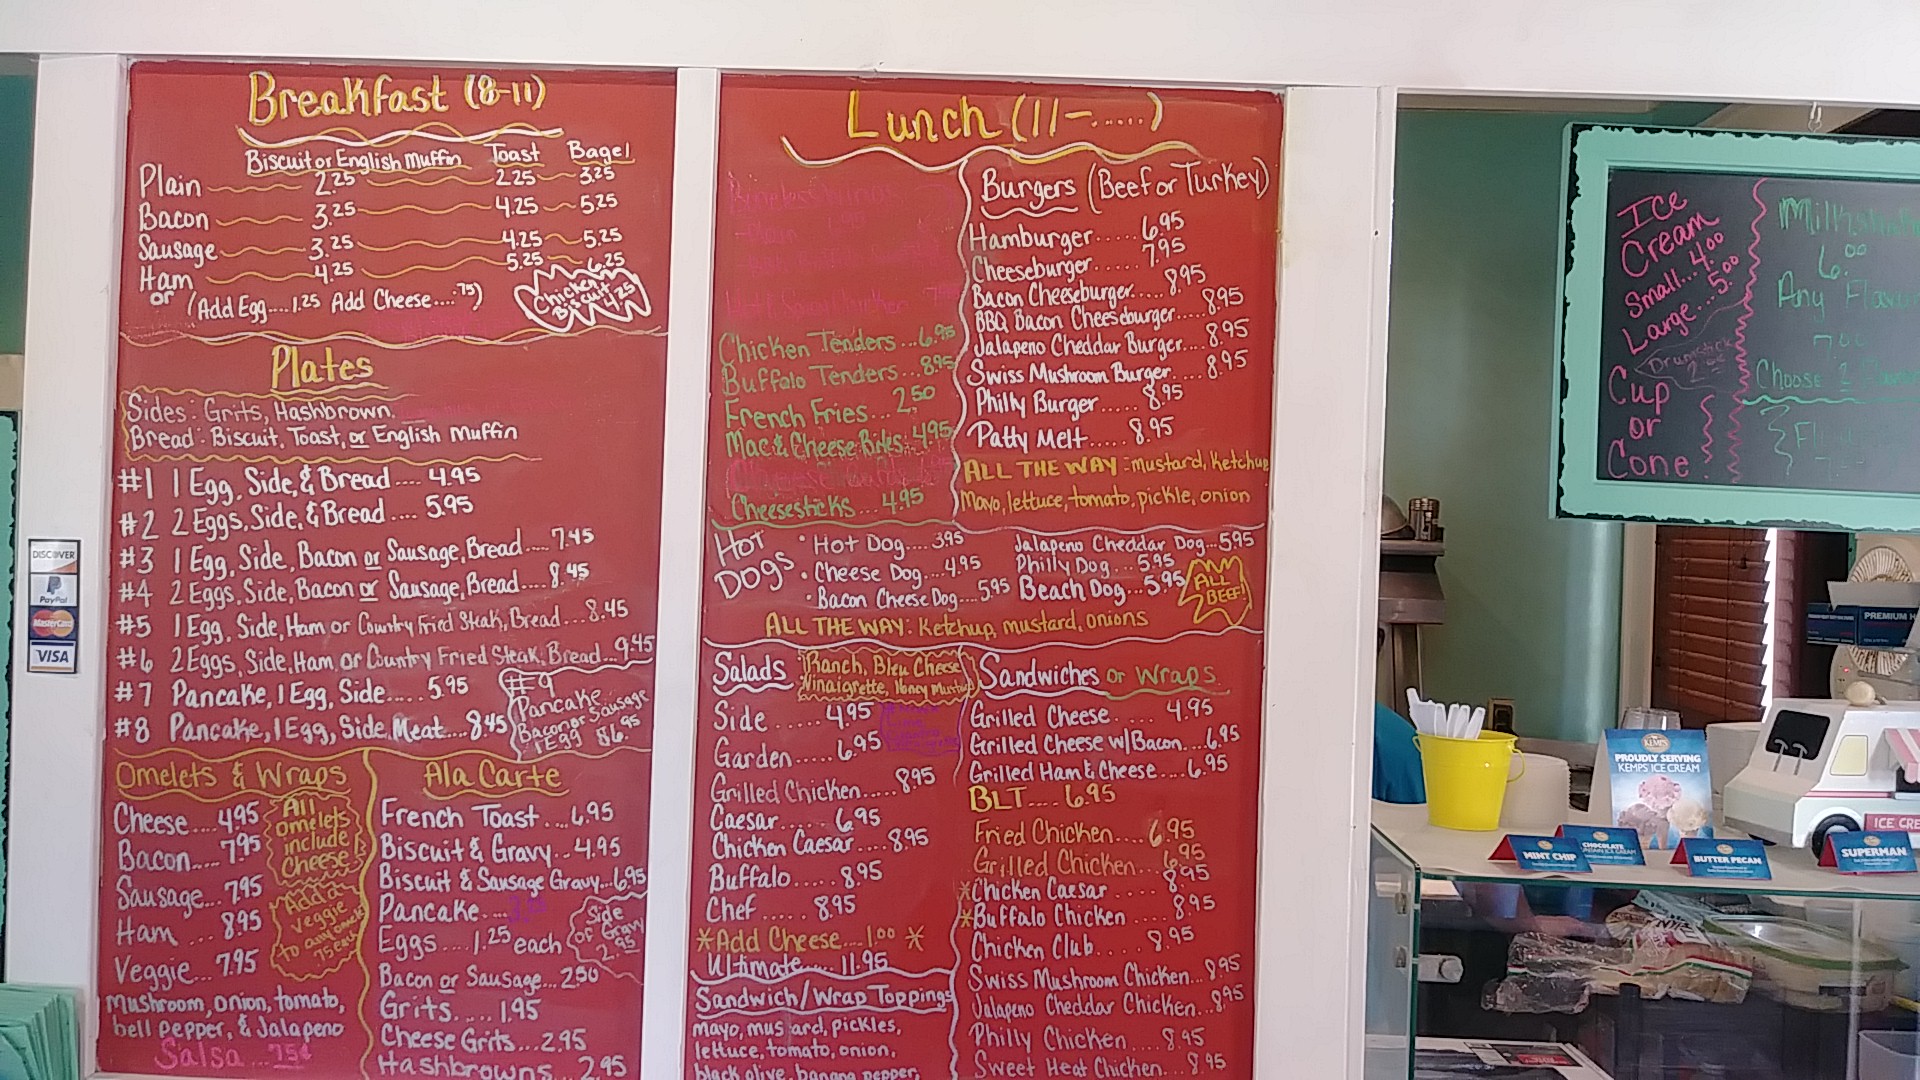 Breakfast (8-11)
Biscuit or English Muffin Toast Bagel
Plain 2.25 2.25 3.25
Bacon 3.25 4.25 5.25
Sausage 3.25 4.25 5.25
Ham 4.25 5.25 6.25
or (Add Egg....1.25 Add Cheese....75)
Chicken
Biscuit
4.25
Plates
Sides: Grits, Hashbrown
Bread: Biscuit, Toast, or English Muffin
#1 1 Egg, Side, & Bread .... 4.95
#2 2 Eggs, Side, & Bread .... 5.95
#3 1 Egg, Side, Bacon or Sausage, Bread.... 7.45
#4 2 Eggs, Side, Bacon or Sausage, Bread....8.45
#5 1 Egg, Side, Ham or Country Fried Steak, Bread...8.45
#6 2 Eggs, Side, Ham or Country Fried Steak, Bread...9.45
#7 Pancake, 1 Egg, Side..... 5.95
#8 Pancake, 1 Egg, Side, Meat....8.45
#9
Pancake
Bacon or Sausage
1 Egg $6.95
Omelets & Wraps
Cheese....4.95
Bacon.... 7.95
Sausage... 7.95
Ham ... 8.95
Veggie... 7.95
All
omelets
include
Cheese!
Add a
Veggie
to any omelet
75 each
Mushroom, onion, tomato,
bell pepper, & Jalapeno
Salsa ...75¢
Ala Carte
French Toast ...6.95
Biscuit & Gravy...4.95
Biscuit & Sausage Gravy...6.95
Pancake....
Eggs ....1.25 each
Side
of Gravy
2.95
Bacon or Sausage...2.50
Grits..... 1.95
Cheese Grits...2.95
Hashbrowns...2.95
Lunch (11-.....)
Chicken Tenders...6.95
Buffalo Tenders...8.95
French Fries...2.50
Mac & Cheese Bites.. 4.95
Cheesesticks ....4.95
Burgers (Beef or Turkey)
Hamburger..... 6.95
Cheeseburger...... 7.95
Bacon Cheeseburger.....8.95
BBQ Bacon Cheeseburger.....8.95
Jalapeno Cheddar Burger....8.95
Swiss Mushroom Burger.....8.95
Philly Burger..... 8.95
Patty Melt..... 8.95
ALL THE WAY: mustard, ketchup
Mayo, lettuce, tomato, pickle, onion
Hot
Dogs
Hot Dog.... 3.95
Cheese Dog....4.95
Bacon Cheese Dog....5.95
Jalapeno Cheddar Dog...5.95
Philly Dog.... 5.95
Beach Dog...5.95
ALL
BEEF!
ALL THE WAY: Ketchup, mustard, onions
Salads
Ranch, Bleu Cheese
Vinaigrette, Honey Mustard
Side ...... 4.95
Garden..... 6.95
Grilled Chicken.....8.95
Caesar..... 6.95
Chicken Caesar ....8.95
Buffalo..... 8.95
Chef ...... 8.95
*Add Cheese....1.00 *
Ultimate..... 11.95
Sandwich/Wrap Toppings
mayo, mustard, pickles,
lettuce, tomato, onion,
black olive, banana pepper,
Sandwiches or Wraps
Grilled Cheese ..... 4.95
Grilled Cheese w/Bacon....6.95
Grilled Ham & Cheese....6.95
BLT.... 6.95
Fried Chicken.... 6.95
Grilled Chicken..... 6.95
*Chicken Caesar ..... 8.95
*Buffalo Chicken .... 8.95
Chicken Club.... 8.95
Swiss Mushroom Chicken...8.95
Jalapeno Cheddar Chicken...8.95
Philly Chicken.....8.95
Sweet Heat Chicken...8.95
Ice
Cream
Small...4.00
Large...5.00
Drumstick
Cup
or
Cone
6.00
Any
7.00
Choose 2
DISCOVER
PayPal
MasterCard
VISA
PREMIUM
KEMPS
PROUDLY SERVING
KEMPS ICE CREAM
MINT CHIP
CHOCOLATE
BUTTER PECAN
SUPERMAN
ICE CRE